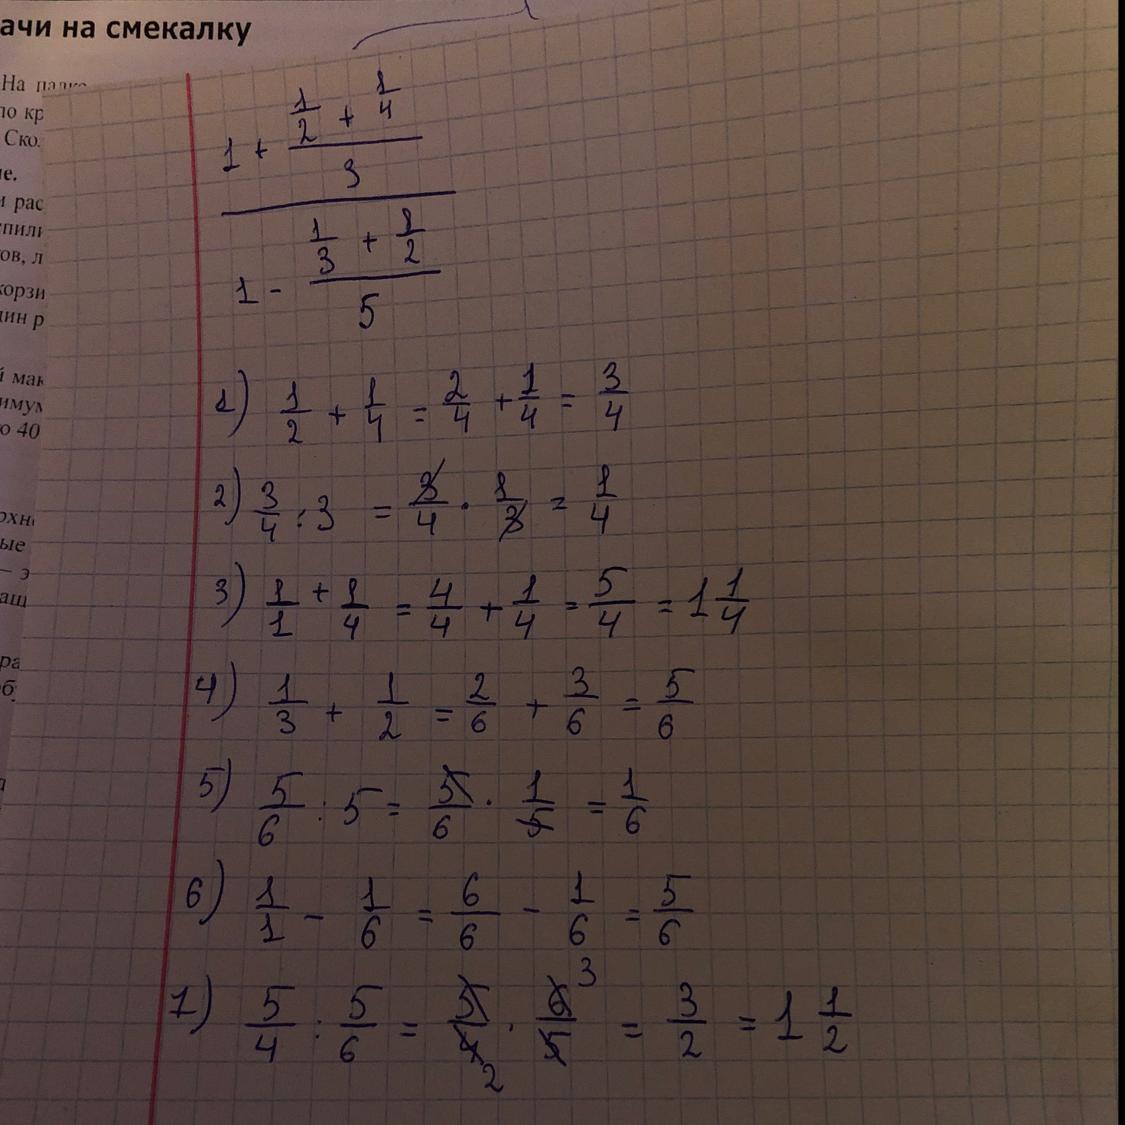 ачи на смекалку
На
по кр
Ско.
ие.
и рас
пили
ов, л
корзи
ин р
й мак
имум
о 40
рхн
ые
– э
ащ
ра
об
1 + (1/2 + 1/4)/3
1 - (1/3 + 1/2)/5
1) 1/2 + 1/4 = 2/4 + 1/4 = 3/4
2) 3/4 : 3 = 3/4 · 1/3 = 1/4
3) 1/1 + 1/4 = 4/4 + 1/4 = 5/4 = 1 1/4
4) 1/3 + 1/2 = 2/6 + 3/6 = 5/6
5) 5/6 : 5 = 5/6 · 1/5 = 1/6
6) 1/1 - 1/6 = 6/6 - 1/6 = 5/6
7) 5/4 : 5/6 = 5/4 2 · 6/5 3 = 3/2 = 1 1/2